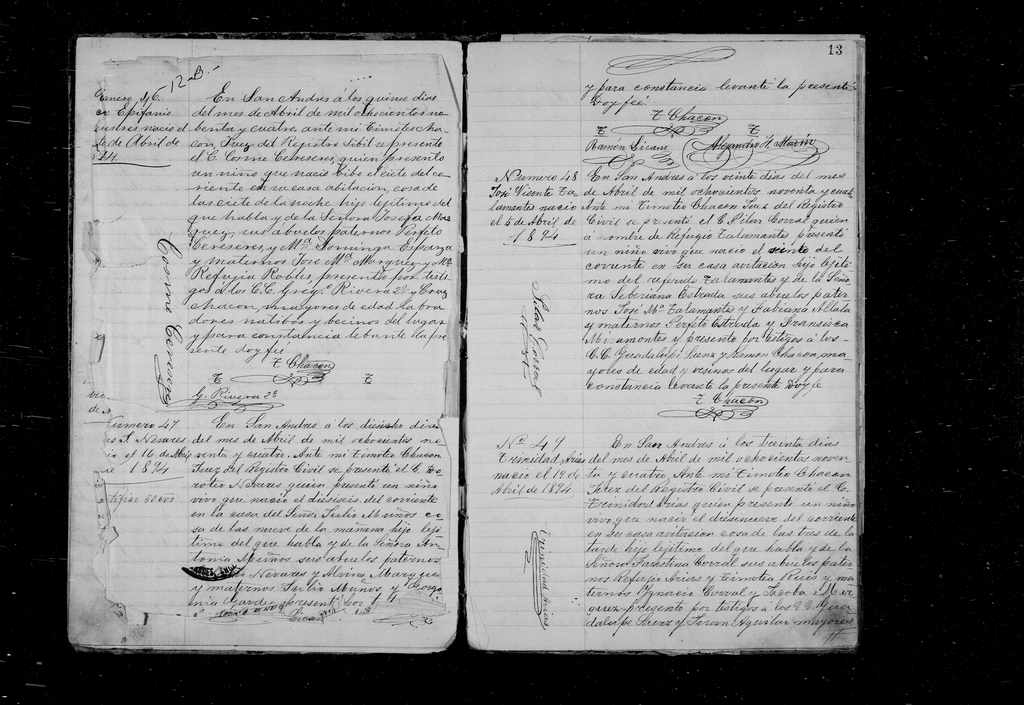 12-B.-
En San Andres á los quinse dias
del mes de Abril de mil ochocientos no
benta y cuatro, ante mi Timoteo Cha
con, Juez del Registro Sibil se presente
el C. Cosme Cereseres, quien presento
un niño que nacio bibo el ciete del co
riente en su casa abitacion, cosa de
las ciete de la noche hijo legitimo del
que habla y de la Señora Josefa Mar
quez, sus abuelos paternos Perfeto
Cereseres, y Mª Dominga Esparza
y maternos Jose Mª Marquez y Mª
Refugia Robles presento por testi
gos a los C.C. Greg.º Rivera 2º y Cruz
Chacon, mayores de edad labra
dores natibos y becinos del lugar
y para constancia lebante la pre
sente doy fee
T Chacon
G. Rivera 2º
Epifanio
nacio el
de Abril de
Numero 47
Nevares
el 16 de Abril
1894
En San Andres a los dieciseis dias
del mes de Abril de mil ochocientos no
venta y cuatro. Ante mi Timoteo Chacon
Juez del Registro Civil se presente el C.
Nevares quien presentó un niño
vivo que nacio el dieseseis del corriente
en la casa del Señor Julio Muños co
sa de las nueve de la mañana hijo legi
timo del que habla y de la Señora An
tonia Muños sus abuelos paternos
Nevares y Maria Marquez
y maternos Julio Muños y
13
y para constancia levante la presente
Doy feé
T Chacon
Ramon Licano
Numero 48
Jose Vicente Ta
lamantes nacio
el 5 de Abril de
1894
Pilar Corral
En San Andres á los veinte dias del mes
de Abril de mil ochocientos noventa y cuatro
Ante mi Timoteo Chacon Juez del Registro
Civil se presentó el C. Pilar Corral quien
á nombre de Refugio Talamantes presentó
un niño vivo que nacio el sinco del
corriente en su casa avitacion hijo legiti
mo del referido Talamantes y de la Seño
ra Seberiana Estrada sus abuelos pater
nos José Mª Talamantes y Fabiana Aldala
y maternos Perfeto Estrada y Fransisca
Miramontes y presento por testigos á los
C.C. Guadalupe Saenz y Ramon Chacon ma
yores de edad y vesinos del lugar y para
constancia levante la presente Doy fe
T Chacon
Nº 49
Trinidad Arias
nacio el 19 de
Abril de 1894
Trinidad Arias
En San Andres á los treinta dias
del mes de Abril de mil ochocientos noven
ta y cuatro, Ante mi Timoteo Chacon
Juez del Registro Civil se presentó el C.
Trinidad Arias quien presento un niño
vivo que nacio el diesinueve del corriente
en su casa avitasion cosa de las tres de la
tarde hijo legitimo del que habla y de la
Señora Faustina Corral sus abuelos pater
nos Refugio Arias y Timotea Ruis y ma
ternos Ygnacio Corral y Jacoba Mar
quez presento por testigos á los C.C. Gua
dalupe Saenz y Juan Aguilar mayores